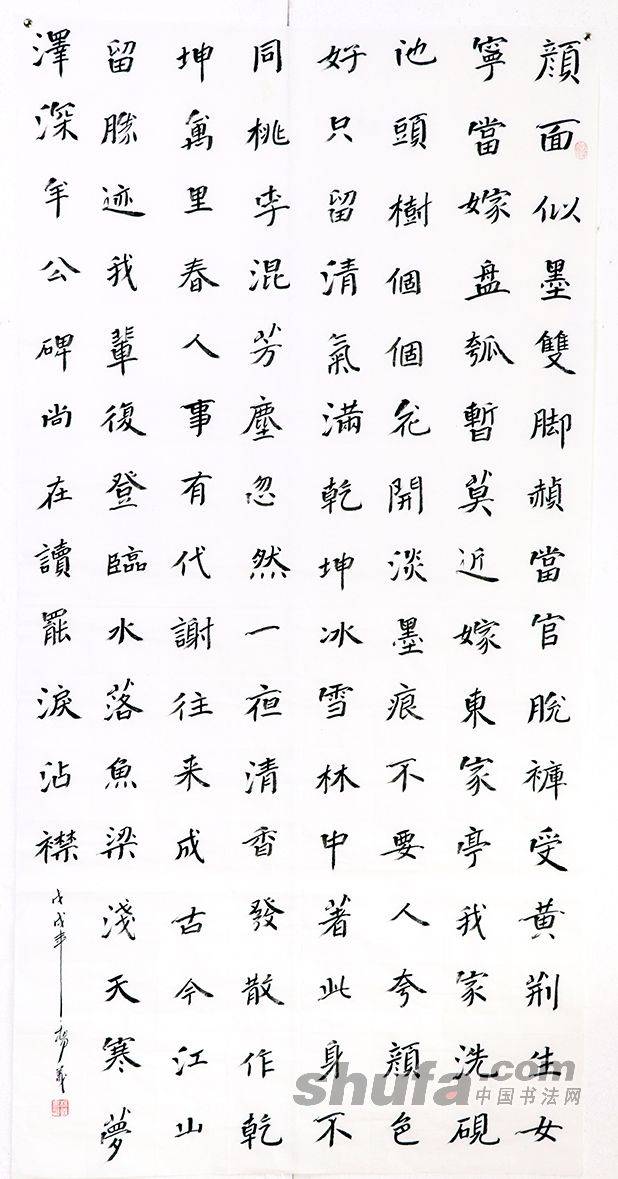 顔面似墨雙脚赬當官脫褲受黄荆生女
寧當嫁盤瓠暫莫近嫁東家亭我家洗硯
池頭樹個個花開淡墨痕不要人夸顔色
好只留清氣滿乾坤冰雪林中著此身不
同桃李混芳塵忽然一夜清香發散作乾
坤萬里春人事有代謝往来成古今江山
留勝迹我輩復登臨水落魚梁淺天寒夢
澤深年公碑尚在讀罷淚沾襟
戊戌年
shufa.com
中国书法网